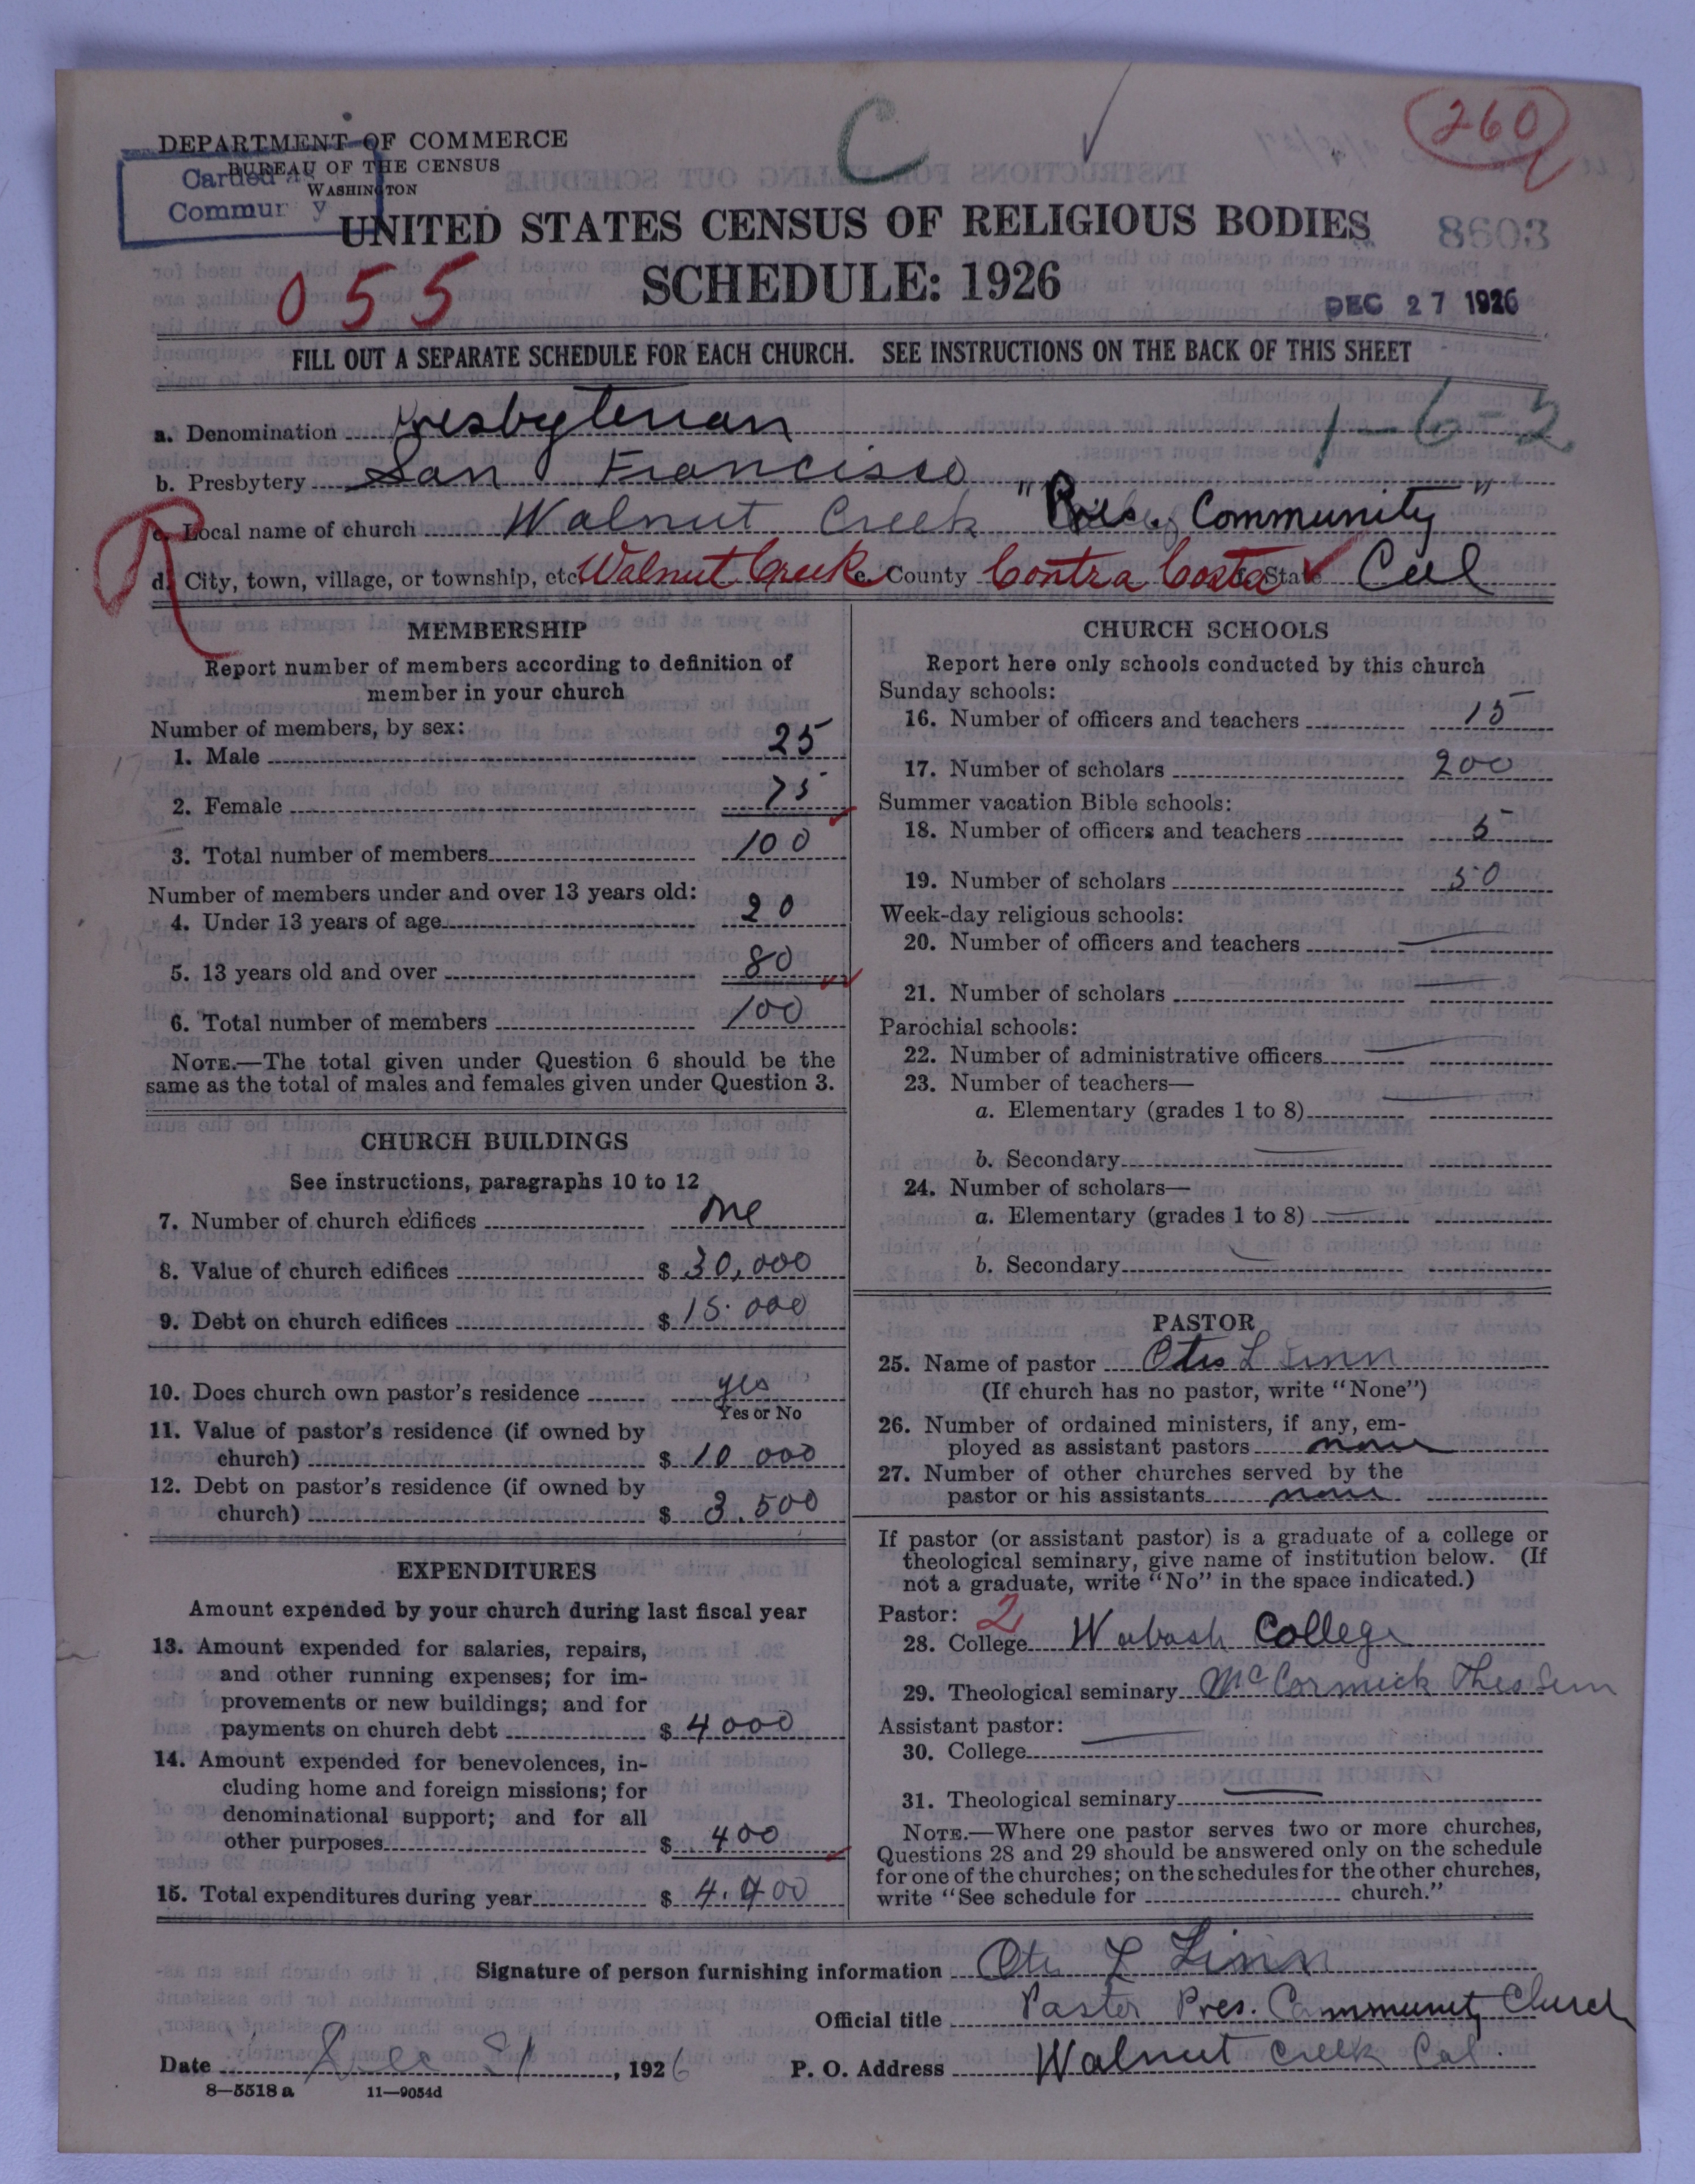 C
260
DEPARTMENT OF COMMERCE
BUREAU OF THE CENSUS
WASHINGTON
Carded
Commur y
UNITED STATES CENSUS OF RELIGIOUS BODIES
8603
SCHEDULE: 1926
055
DEC 27 1926
FILL OUT A SEPARATE SCHEDULE FOR EACH CHURCH. SEE INSTRUCTIONS ON THE BACK OF THIS SHEET
a. Denomination Presbyterian
1-6-2
b. Presbytery San Francisco
R
c. Local name of church Walnut Creek "Pres. Community"
d. City, town, village, or township, etc. Walnut Creek e. County Contra Costa f. State Cal
MEMBERSHIP
Report number of members according to definition of
member in your church
Number of members, by sex:
1. Male 25
2. Female 75
3. Total number of members 100
Number of members under and over 13 years old:
4. Under 13 years of age 20
5. 13 years old and over 80
6. Total number of members 100
NOTE.—The total given under Question 6 should be the
same as the total of males and females given under Question 3.
CHURCH BUILDINGS
See instructions, paragraphs 10 to 12
7. Number of church edifices one
8. Value of church edifices $ 30,000
9. Debt on church edifices $ 15.000
10. Does church own pastor's residence yes
Yes or No
11. Value of pastor's residence (if owned by
church) $ 10 000
12. Debt on pastor's residence (if owned by
church) $ 3.500
EXPENDITURES
Amount expended by your church during last fiscal year
13. Amount expended for salaries, repairs,
and other running expenses; for im-
provements or new buildings; and for
payments on church debt $ 4000
14. Amount expended for benevolences, in-
cluding home and foreign missions; for
denominational support; and for all
other purposes $ 400
15. Total expenditures during year $ 4.400
CHURCH SCHOOLS
Report here only schools conducted by this church
Sunday schools:
16. Number of officers and teachers 15
17. Number of scholars 200
Summer vacation Bible schools:
18. Number of officers and teachers 5
19. Number of scholars 50
Week-day religious schools:
20. Number of officers and teachers
21. Number of scholars
Parochial schools:
22. Number of administrative officers
23. Number of teachers—
a. Elementary (grades 1 to 8)
b. Secondary
24. Number of scholars—
a. Elementary (grades 1 to 8)
b. Secondary
PASTOR
25. Name of pastor Otis L Linn
(If church has no pastor, write "None")
26. Number of ordained ministers, if any, em-
ployed as assistant pastors none
27. Number of other churches served by the
pastor or his assistants none
If pastor (or assistant pastor) is a graduate of a college or
theological seminary, give name of institution below. (If
not a graduate, write "No" in the space indicated.)
Pastor: 2
28. College Wabash College
29. Theological seminary McCormick Theo Sem
Assistant pastor:
30. College
31. Theological seminary
NOTE.—Where one pastor serves two or more churches,
Questions 28 and 29 should be answered only on the schedule
for one of the churches; on the schedules for the other churches,
write "See schedule for church."
Signature of person furnishing information Otis L Linn
Official title Pastor Pres. Community Church
Date Dec 21, 1926 P. O. Address Walnut Creek Cal.
8—5518 a 11—9054d